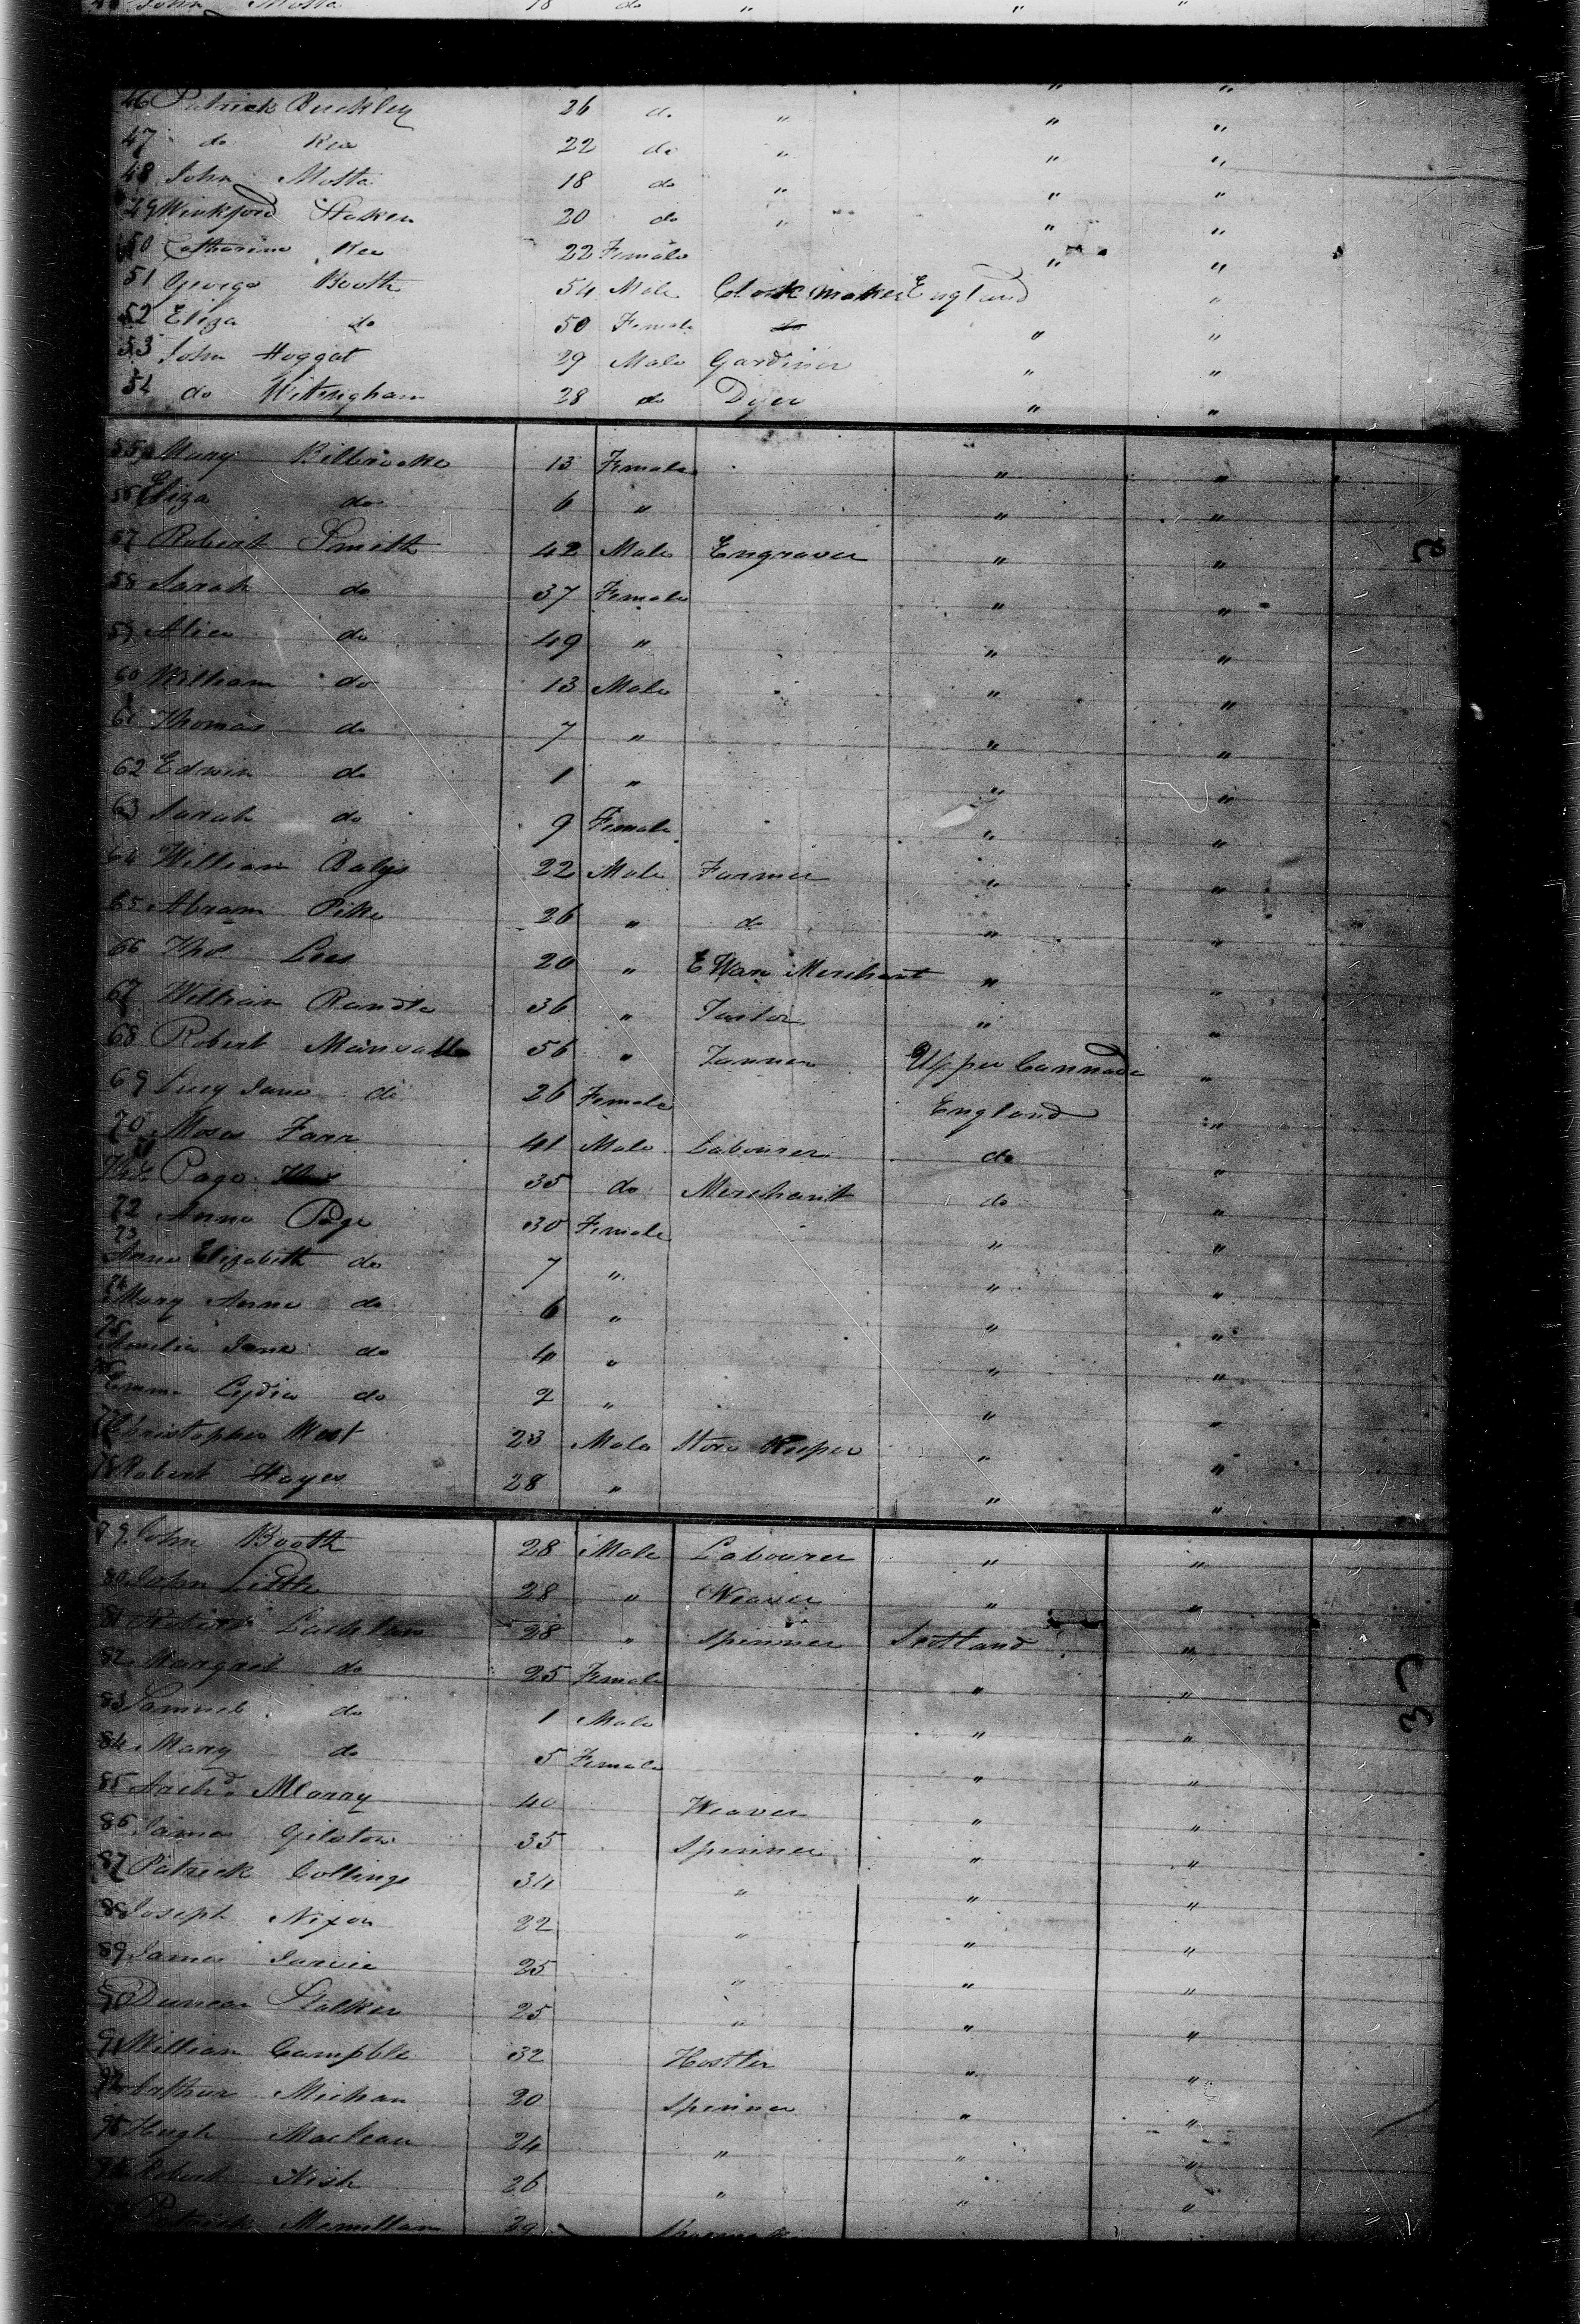 48 John Mosta 18 do " " "
46 Patrick Buckley 26 do " " "
47 do Kea 22 do " " "
48 John Mosta 18 do " " "
49 Winkford Staken 20 do " " "
50 Catharine Kea 22 Female " "
51 George Booth 54 Male Clock maker England "
52 Eliza do 50 Female do " "
53 John Hoggat 29 Male Gardiner " "
54 do Witingham 28 do Dyer " "
55 Mary Kilbrooke 13 Female " "
56 Eliza do 6 " " "
57 Robert Smith 42 Male Engraver " "
58 Sarah do 37 Female " "
59 Alice do 49 " " "
60 William do 13 Male " "
61 Thomas do 7 " " "
62 Edwin do 1 " " "
63 Sarah do 9 Female " "
64 William Balys 22 Male Farmer " "
65 Abram Pike 26 " do " "
66 Thos Lees 20 " E Ware Merchant " "
67 William Randle 36 " Tailor " "
68 Robert 56 " Tanner Upper Cannada "
69 Lucy Jane do 26 Female England "
70 Moses Farr 41 Male Labourer do "
Thos Page 35 do Merchant do "
72 Anne Page 30 Female " "
73 Anne Elizabeth do 7 " " "
74 Mary Anne do 6 " " "
75 Amelia Jane do 4 " " "
76 Emma Lydia do 2 " " "
77 Christopher West 23 Male Store Keeper " "
78 Robert Hayes 28 " " "
79 John Booth 28 Male Labourer " "
80 John Little 28 " Weaver " "
81 Robert Lachlan 28 " Spinner Scotland "
82 Margret do 25 Female " "
83 Samuel do 1 Male " "
84 Mary do 5 Female " "
85 Archd McLarry 40 Weaver " "
86 James Gilston 35 Spinner " "
87 Patrick Collings 34 " " "
88 Joseph Nixon 22 " " "
89 James Jarvie 25 " " "
90 Duncan Stalker 25 " " "
91 William Campble 32 Hostler " "
92 Arthur Michan 20 Spinner " "
93 Hugh Maclean 24 " " "
94 Robert Nish 26 " " "
Patrick Mcmullan 29
2
3